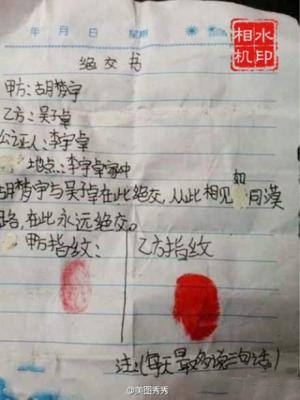 年 月 日 星期
水印相机
绝交书
甲方:胡梦宇
乙方:吴子卓
公证人:李宇卓
地点:李宇卓家中
胡梦宇与吴子卓在此绝交,从此相见如同漠
路,在此永远绝交。
甲方指纹: 乙方指纹
注:(每天最多说三句话)
@美图秀秀